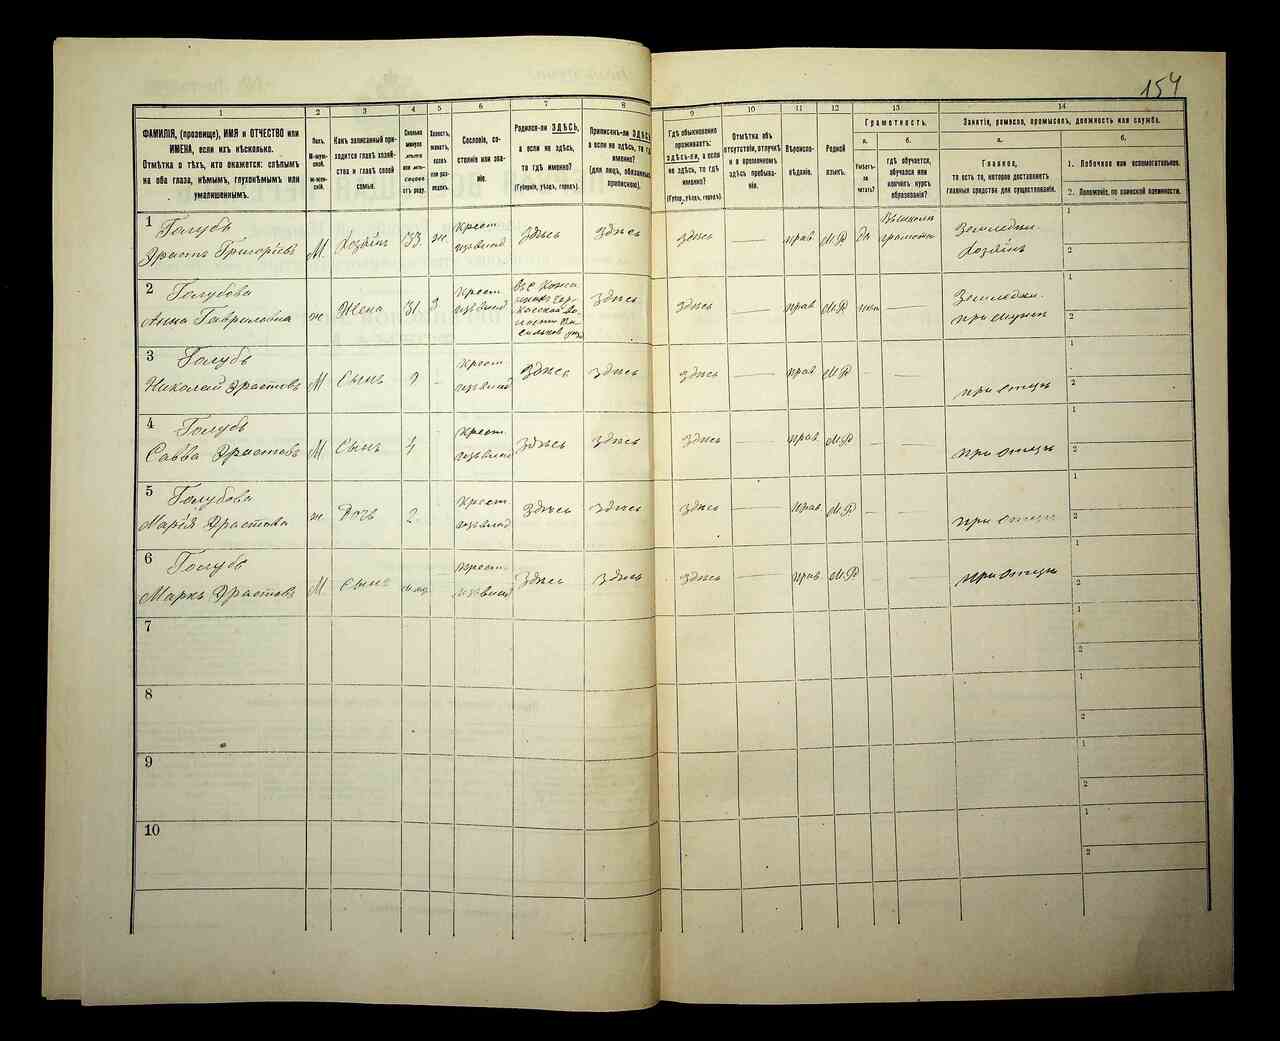 154
1
2
3
4
5
6
7
8
9
10
11
12
13
14
ФАМИЛІЯ, (прозвище), ИМЯ и ОТЧЕСТВО или
ИМЕНА, если ихъ нѣсколько.
Отмѣтка о тѣхъ, кто окажется: слѣпымъ
на оба глаза, нѣмымъ, глухонѣмымъ или
умалишеннымъ.
Полъ.
М-мужской.
ж-женскій.
Какъ записанный при-
ходится главѣ хозяй-
ства и главѣ своей
семьи.
Сколько
минуло
лѣтъ
или мѣ-
сяцевъ
отъ роду.
Холостъ,
женатъ,
вдовъ
или раз-
веденъ.
Сословіе, со-
стояніе или зва-
ніе.
Родился-ли ЗДѢСЬ,
а если не здѣсь,
то гдѣ именно?
(Губернія, уѣздъ, городъ).
Приписанъ-ли ЗДѢСЬ,
а если не здѣсь, то гдѣ
именно?
(для лицъ, обязанныхъ
припискою).
Гдѣ обыкновенно
проживаетъ:
ЗДѢСЬ-ли, а если
не здѣсь, то гдѣ
именно?
(Губер., уѣздъ, городъ).
Отмѣтка объ
отсутствіи, отлучкѣ
и о временномъ
здѣсь пребыва-
ніи.
Вѣроиспо-
вѣданіе.
Родной
языкъ.
Грамотность.
а.
Умѣетъ-
ли
читать?
б.
гдѣ обучается,
обучался или
кончилъ курсъ
образованія?
Занятіе, ремесло, промыселъ, должность или служба.
а.
Главное,
то есть то, которое доставляетъ
главныя средства для существованія.
б.
1. Побочное или вспомогательное.
2. Положеніе, по воинской повинности.
1 Голубъ
Эрастъ Григорьевъ М Хозяинъ 33 ж. Крест. Здѣсь здѣсь здѣсь прав М.Р да Земледѣл. Хозяинъ 1 2
2 Голубова
Анна Гавриловна ж Жена 31 Крест. здѣсь здѣсь прав М.Р Земледѣл. при мужѣ 1 2
3 Голубъ
Николай Эрастовъ М Сынъ 9 Крест. здѣсь здѣсь здѣсь прав М.Р при отцѣ 1 2
4 Голубъ
Савва Эрастовъ М Сынъ 4 Крест. здѣсь здѣсь здѣсь прав М.Р при отцѣ 1 2
5 Голубова
Марія Эрастова ж Дочь 2 Крест. Здѣсь здѣсь здѣсь прав. М.Р при отцѣ 1 2
6 Голубъ
Маркъ Эрастовъ М Сынъ Крест. Здѣсь здѣсь здѣсь прав М.Р при отцѣ 1 2
7 1 2
8 1 2
9 1 2
10 1 2